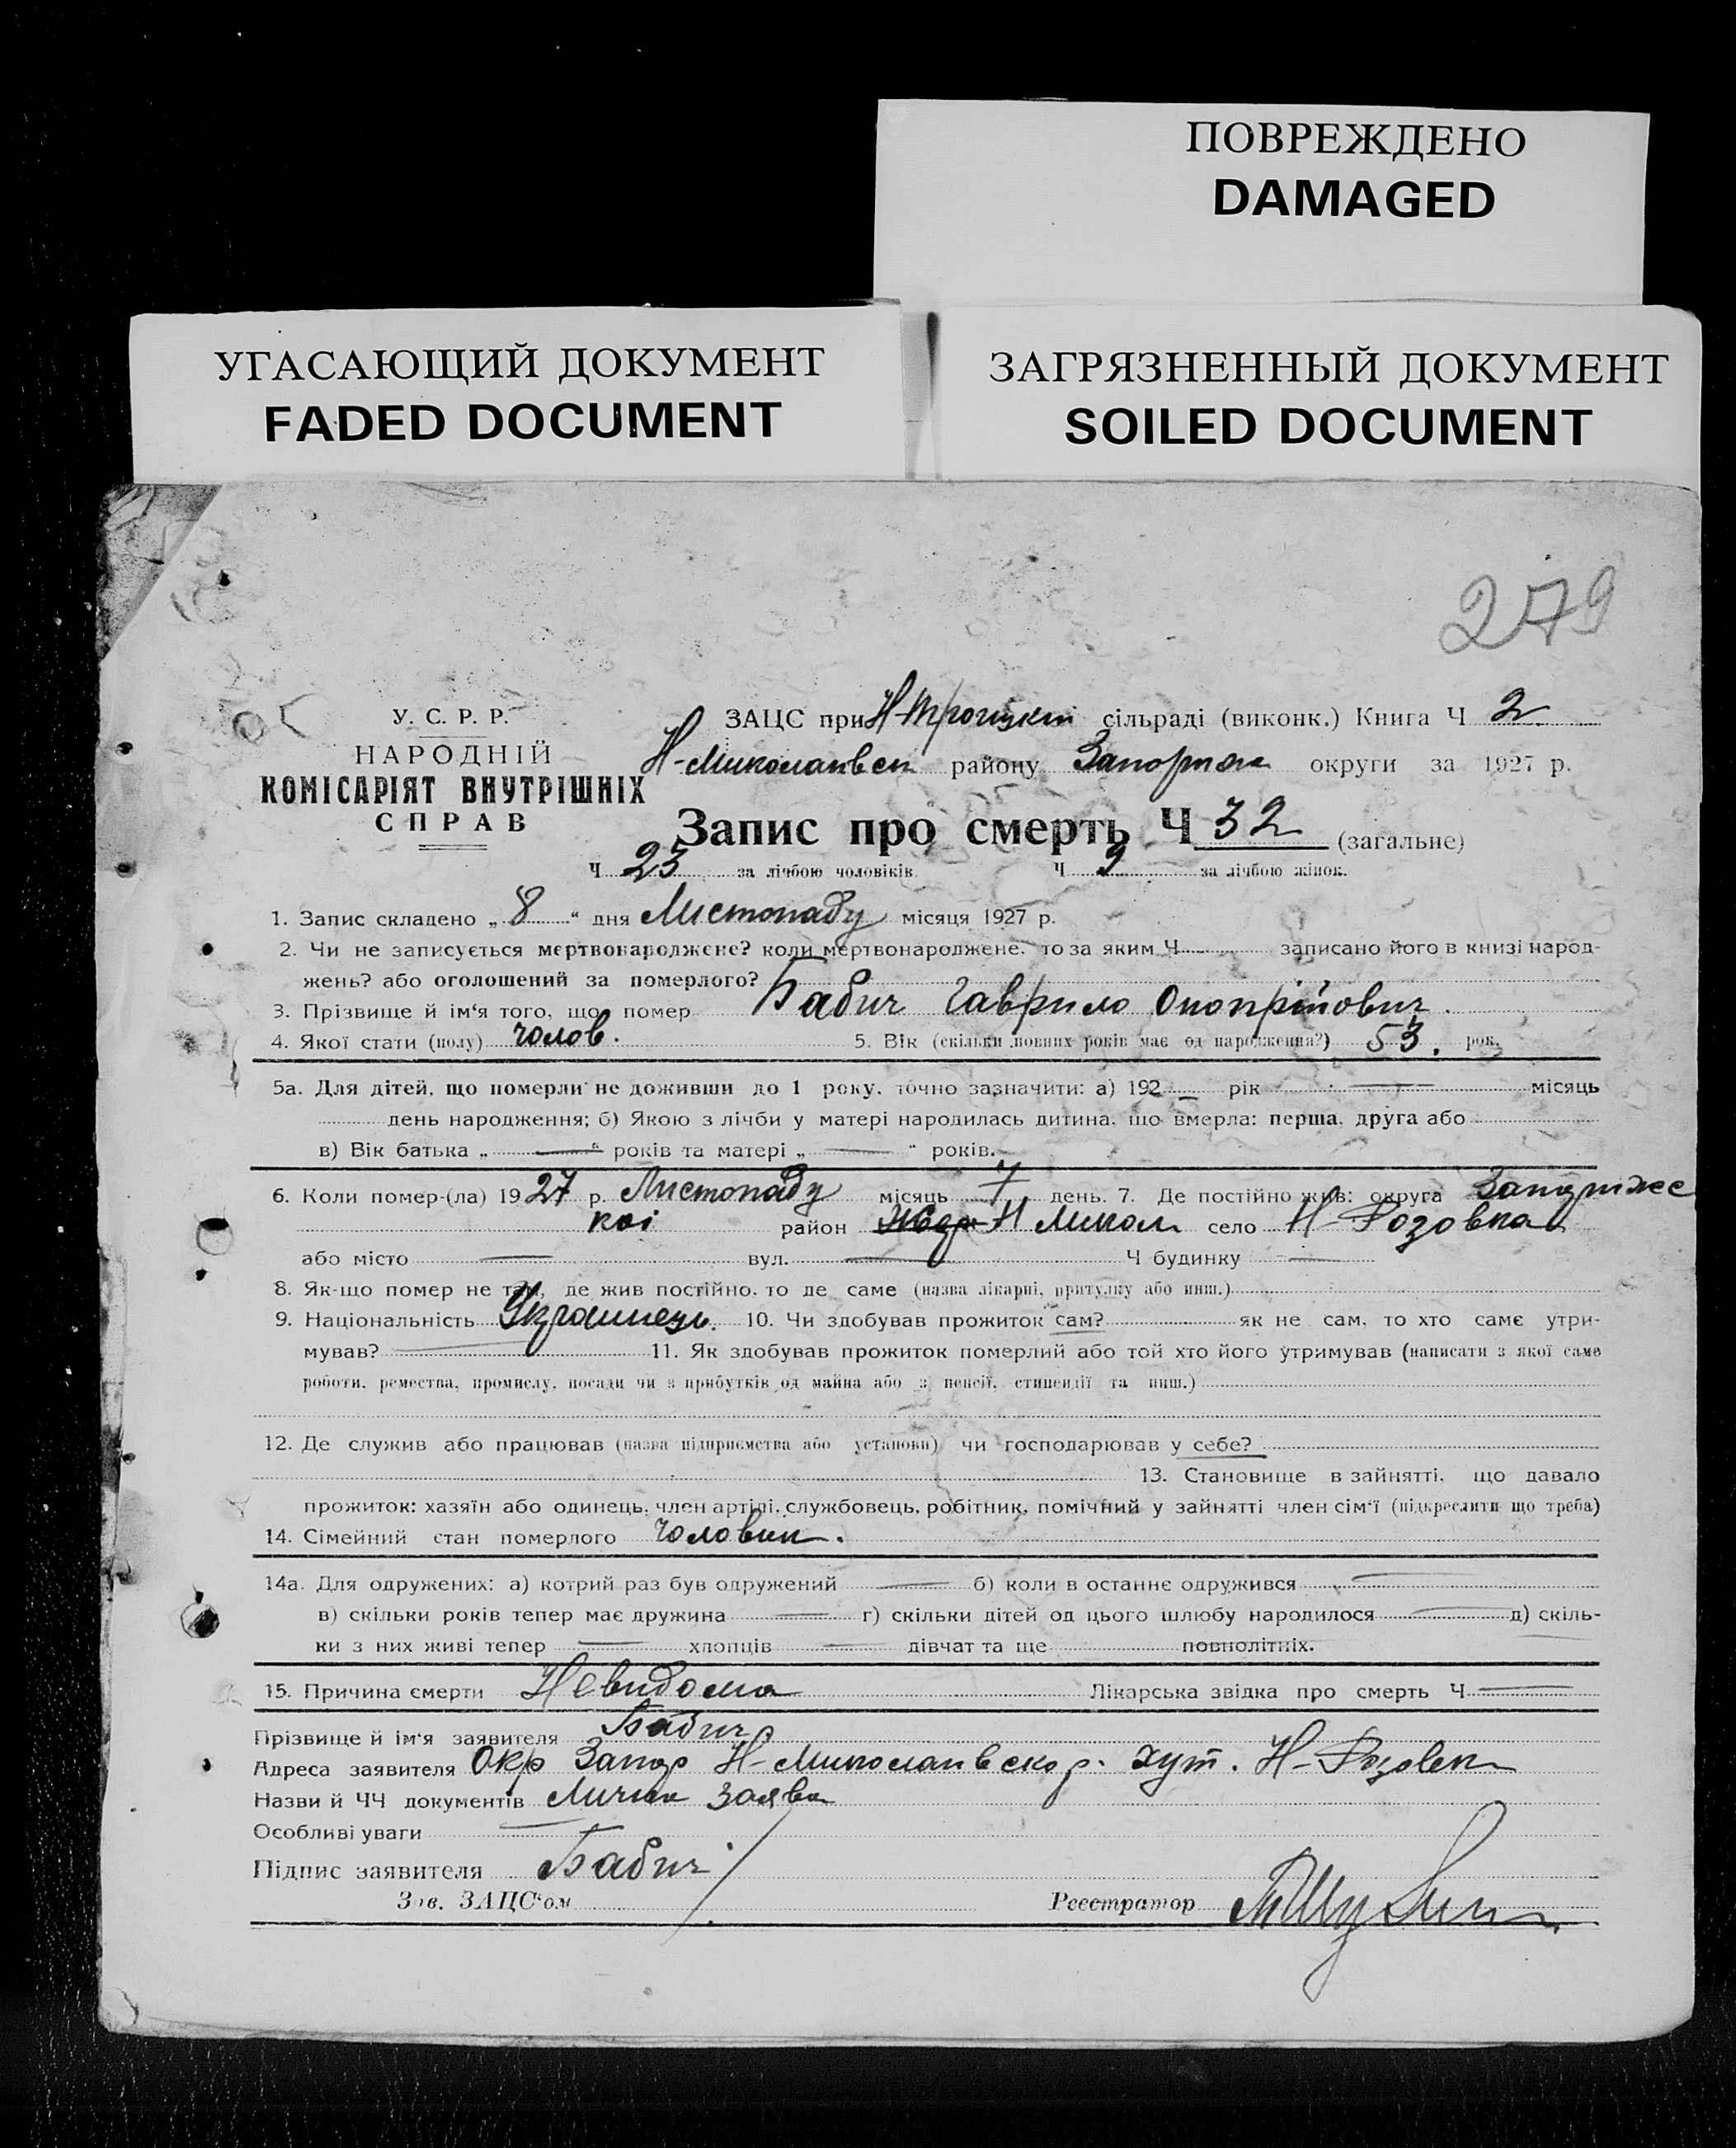 ПОВРЕЖДЕНО
DAMAGED
УГАСАЮЩИЙ ДОКУМЕНТ
FADED DOCUMENT
ЗАГРЯЗНЕННЫЙ ДОКУМЕНТ
SOILED DOCUMENT
279
У. С. Р. Р.
НАРОДНІЙ
КОМІСАРІЯТ ВНУТРІШНІХ
СПРАВ
ЗАЦС при Н-Троицкій сільраді (виконк.) Книга Ч 2
Н-Миколаивск району Запориж округи за 1927 р.
Запис про смерть Ч 32 (загальне)
Ч 23 за лічбою чоловіків. Ч 9 за лічбою жінок.
1. Запис складено „ 8 " дня Листопаду місяця 1927 р.
2. Чи не записується мертвонароджене? коли мертвонароджене, то за яким Ч записано його в книзі народ-
жень? або оголошений за померлого?
3. Прізвище й ім'я того, що помер Бабич Гаврило Онопрійович
4. Якої стати (полу) чолов. 5. Вік (скільки повних років має од народження?) 53. рок.
5а. Для дітей, що померли не доживши до 1 року, точно зазначити: а) 192 рік місяць
день народження; б) Якою з лічби у матері народилась дитина, що вмерла: перша, друга або
в) Вік батька „ " років та матері „ " років.
6. Коли помер-(ла) 1927 р. Листопаду місяць 7 день. 7. Де постійно жив: округа Запориже
кої район Н Микол село Н-Розовка
або місто вул. Ч будинку
8. Як-що помер не там, де жив постійно, то де саме (назва лікарні, притулку або инш.)
9. Національність Украинець. 10. Чи здобував прожиток сам? як не сам, то хто саме утри-
мував? 11. Як здобував прожиток померлий або той хто його утримував (написати з якої саме
роботи, ремества, промислу, посади чи з прибутків од майна або з пенсії, стипендії та инш.)
12. Де служив або працював (назва підприємства або установи) чи господарював у себе?
13. Становище в зайнятті, що давало
прожиток: хазяїн або одинець, член артілі, службовець, робітник, помічний у зайнятті член сім'ї (підкреслити що треба)
14. Сімейний стан померлого Чоловик.
14а. Для одружених: а) котрий раз був одружений б) коли в останнє одружився
в) скільки років тепер має дружина г) скільки дітей од цього шлюбу народилося д) скіль-
ки з них живі тепер хлопців дівчат та ще повнолітніх.
15. Причина смерти Невидома Лікарська звідка про смерть Ч
Прізвище й ім'я заявителя Бабич
Адреса заявителя Окр Запор Н-Миколаивско р. хут. Н-Розовка
Назви й ЧЧ документів Лична заява
Особливі уваги
Підпис заявителя Бабич
Зав. ЗАЦС'ом Реєстратор